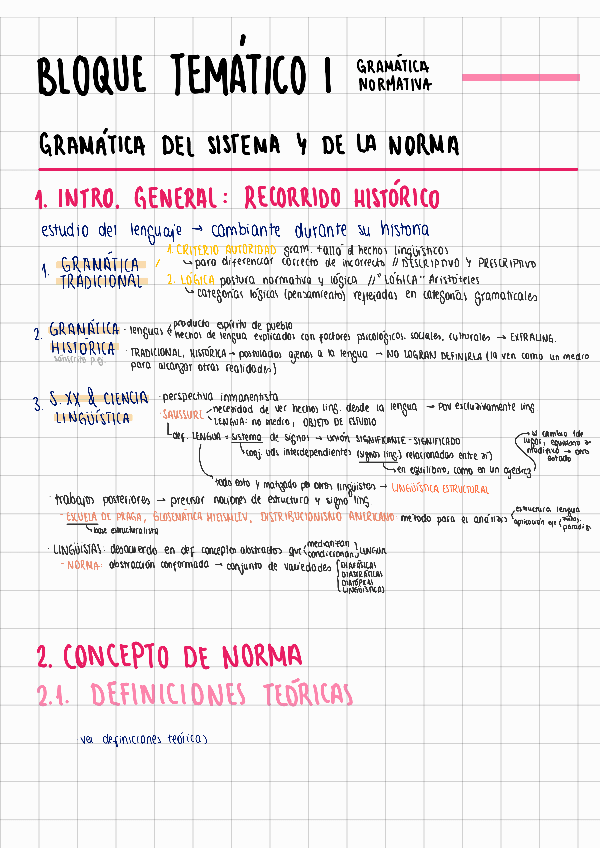 BLOQUE TEMÁTICO I
GRAMÁTICA
NORMATIVA
GRAMÁTICA DEL SISTEMA Y DE LA NORMA
1. INTRO. GENERAL: RECORRIDO HISTÓRICO
estudio del lenguaje → cambiante durante su historia
1. GRAMÁTICA
TRADICIONAL
1. CRITERIO AUTORIDAD gram. + allá d hechos lingüísticos
↳ para diferenciar correcto de incorrecto // DESCRIPTIVO Y PRESCRIPTIVO
2. LÓGICA postura normativa y lógica // "LÓGICA" Aristóteles
↳ categorías lógicas (pensamiento) reflejadas en categorías gramaticales
2. GRAMÁTICA
HISTÓRICA
sánscrito p.ej
· lenguas
producto espíritu de pueblo
hechos de lengua explicados con factores psicológicos, sociales, culturales → EXTRALING.
· TRADICIONAL, HISTÓRICA → postulados ajenos a la lengua → NO LOGRAN DEFINIRLA (la ven como un medio
para alcanzar otras realidades)
3. S.XX & CIENCIA
LINGÜÍSTICA
· perspectiva inmanentista
· SAUSSURE
necesidad de ver hechos ling. desde la lengua → POV exclusivamente ling
LENGUA: no medio, OBJETO DE ESTUDIO
def. LENGUA = sistema de signos → unión SIGNIFICANTE - SIGNIFICADO
conj. uds interdependientes (signos ling.) relacionados entre sí
en equilibrio, como en un ajedrez
si cambio 1 de
lugar, equilibrio se
modifica → otro
estado
todo esto y matizado por otros lingüistas → LINGÜÍSTICA ESTRUCTURAL
· trabajos posteriores → precisar nociones de estructura y signo ling
- ESCUELA DE PRAGA, GLOSEMÁTICA HJELMSLEV, DISTRIBUCIONISMO AMERICANO método para el análisis
base estructuralista
estructura lengua
aplicación eje
sintag.
paradig.
· LINGÜISTAS: desacuerdo en def conceptos abstractos que
mediatizan
condicionan
LENGUA
- NORMA: abstracción conformada → conjunto de variedades
DIAFÁSICAS
DIASTRÁTICAS
DIATÓPICAS
LINGÜÍSTICAS
2. CONCEPTO DE NORMA
2.1. DEFINICIONES TEÓRICAS
ver definiciones teóricas